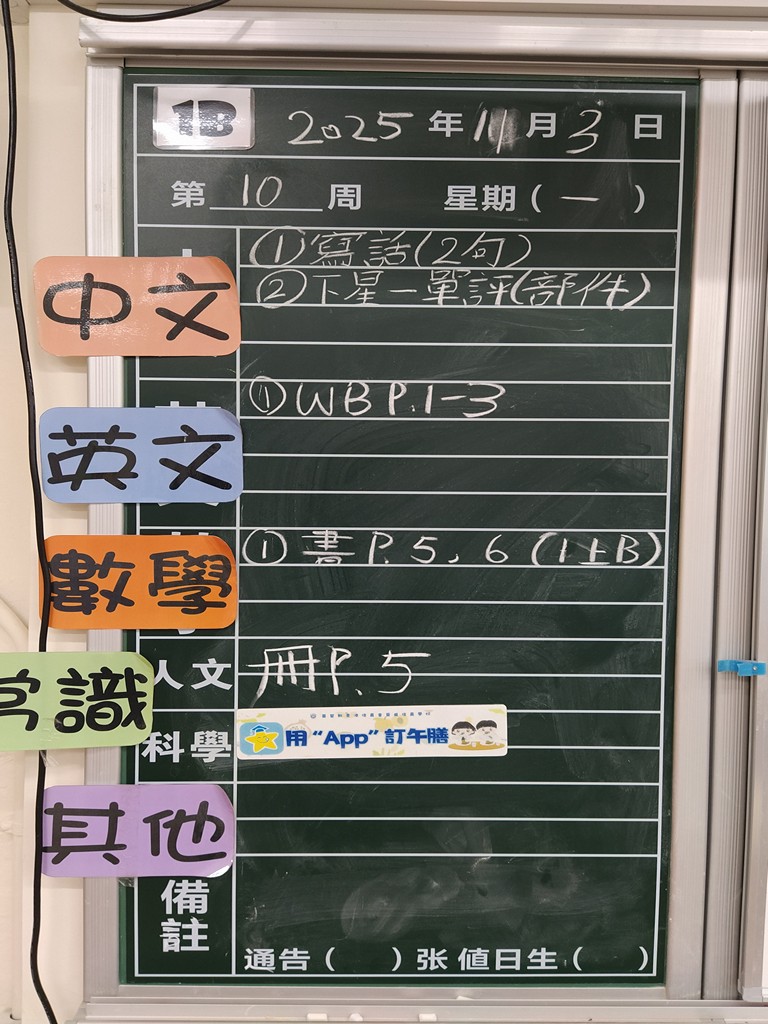 1B 2025 年 11 月 3 日
第 10 周 星期 ( 一 )
中文
① 寫話(2句)
② 下星一單評(部件)
英文
① WB P.1-3
數學
① 書 P. 5, 6 (1上B)
人文 冊 P. 5
常識
科學
用“App”訂午膳
其他
備註
通告 ( ) 张 值日生 ( )